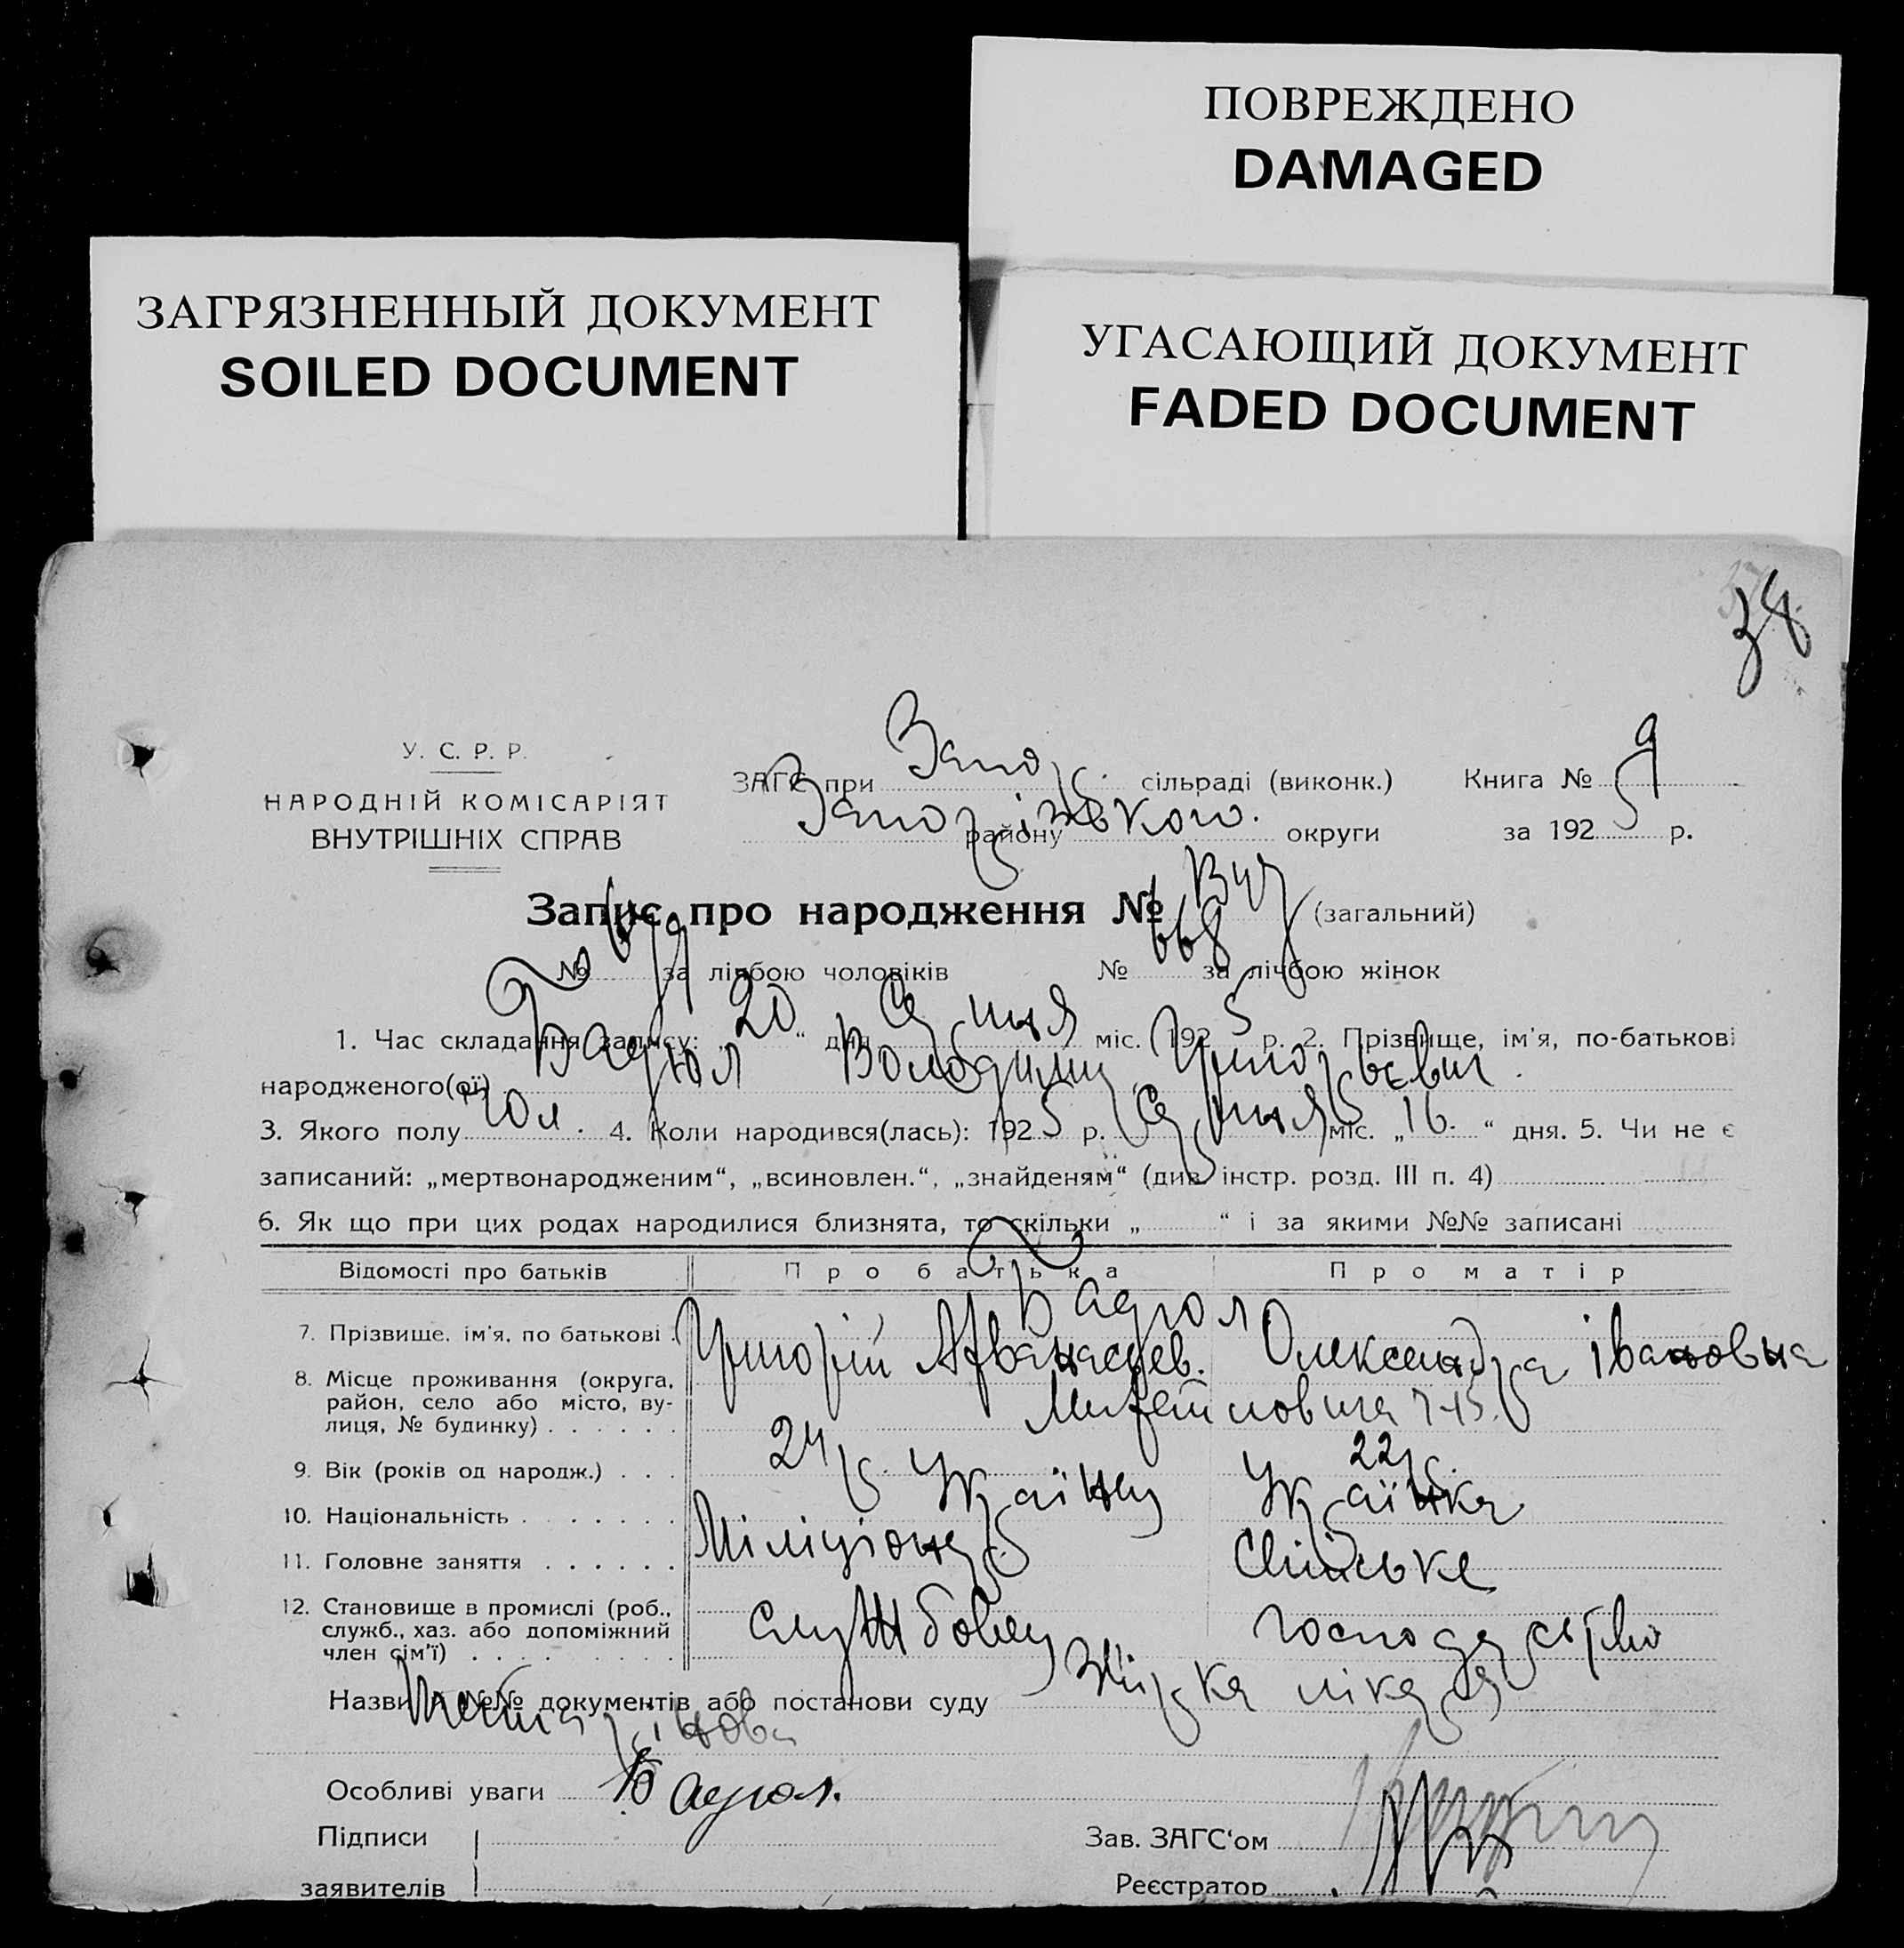 ПОВРЕЖДЕНО
DAMAGED
ЗАГРЯЗНЕННЫЙ ДОКУМЕНТ
SOILED DOCUMENT
УГАСАЮЩИЙ ДОКУМЕНТ
FADED DOCUMENT
38
У. С. Р. Р.
НАРОДНІЙ КОМІСАРІЯТ
ВНУТРІШНІХ СПРАВ
ЗАГС при Запор. сільраді (виконк.) Книга № 9
Запорізького. району округи за 1925 р.
Запис про народження № 668 (загальний)
№ за лічбою чоловіків № за лічбою жінок
1. Час складання запису: „20“ дня Серпня міс. 1925 р. 2. Прізвище, ім'я, по-батькові
народженого(ої) Бадюл Володимир Григорьевич.
3. Якого полу Чол. 4. Коли народився(лась): 1925 р. Серпня міс. „16.“ дня. 5. Чи не є
записаний: „мертвонародженим“, „всиновлен.“, „знайденям“ (див. інстр. розд. III п. 4)
6. Як що при цих родах народилися близнята, то скільки „ “ і за якими №№ записані
Відомості про батьків Про батька Про матір
Бадюл
7. Прізвище, ім'я, по батькові. Григорій Афанасьев. Олександра івановна
8. Місце проживання (округа,
район, село або місто, ву-
лиця, № будинку)
9. Вік (років од народж.) 24 р. 22 р.
10. Національність Українец Українка
11. Головне заняття Міліціонер
12. Становище в промислі (роб.,
служб., хаз. або допоміжний
член сім'ї) службовец господарство
Назви й №№ документів або постанови суду лікаря
Особливі уваги Бадюл.
Підписи Зав. ЗАГС'ом
заявителів Реєстратор